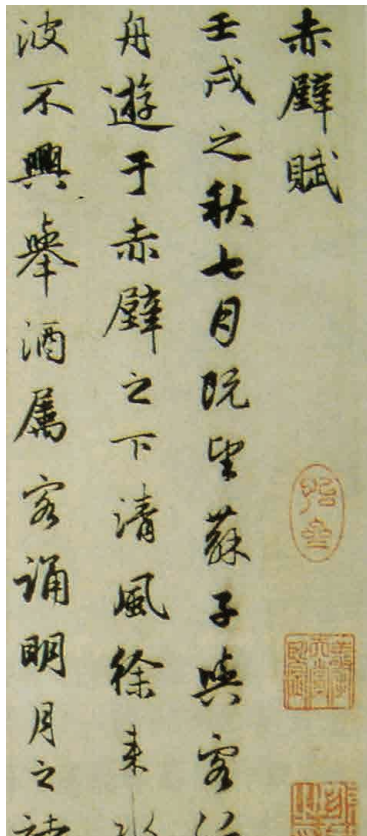 赤壁賦
壬戌之秋七月既望蘇子與客
舟遊于赤壁之下清風徐来水
波不興舉酒属客誦明月之詩